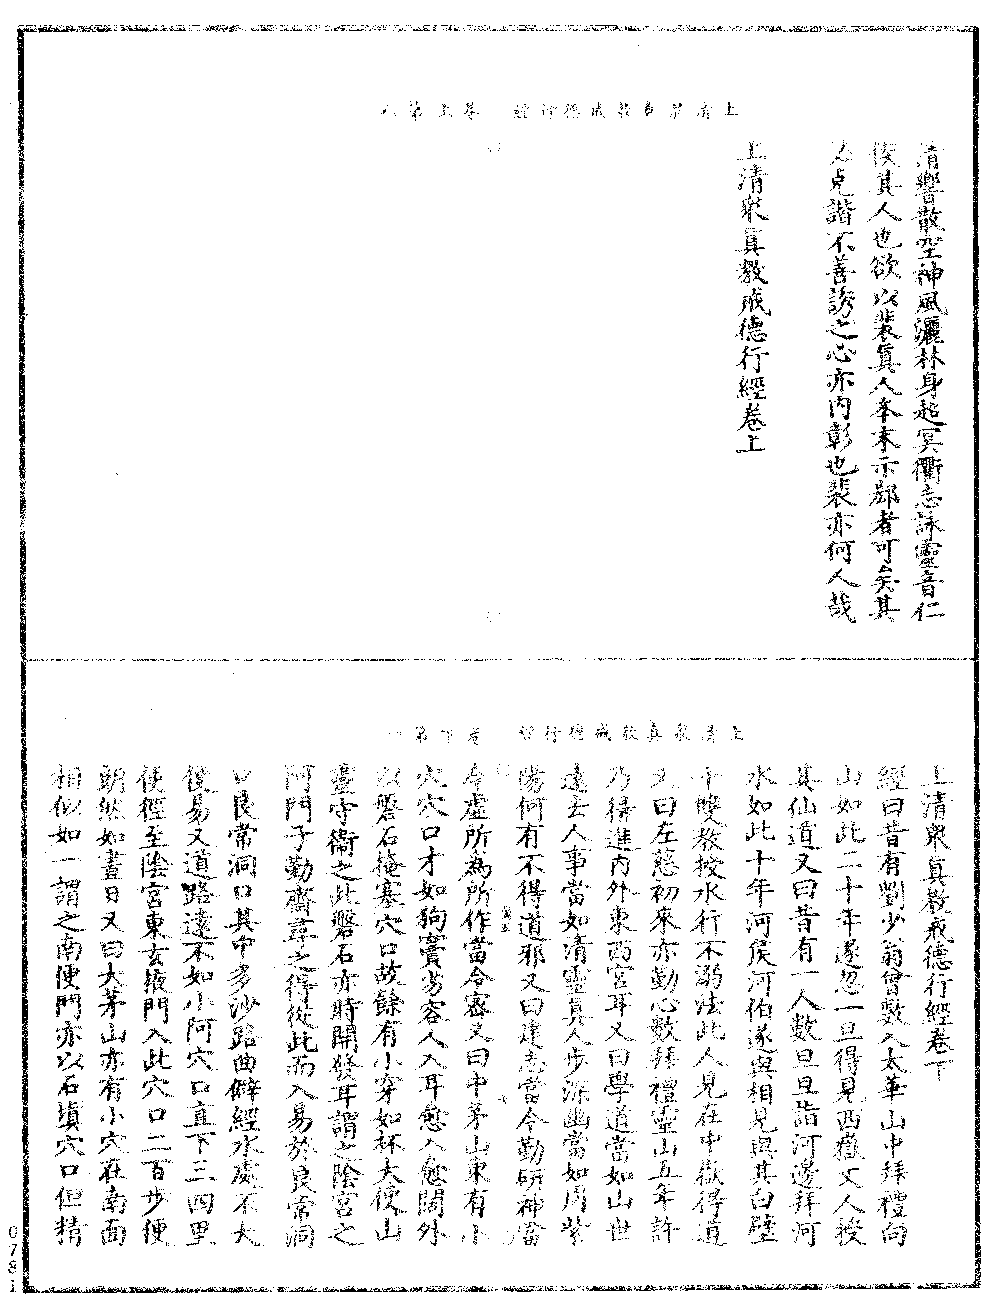 上清衆真教戒德行經　卷上第八
清響散空神風灑林身起冥衢志詠靈音仁
侯其人也欲以裴真人本末示郄者可矣其
必克諧不善誘之心亦內彰也裴亦何人哉
上清衆真教戒德行經卷上
上清衆真教戒德行經　卷下第一
上清衆真教戒德行經卷下
經曰昔有劉少翁曾數入太華山中拜禮向
山如此二十年遂忽一旦得見西嶽丈人授
其仙道又曰昔有一人數旦旦詣河邊拜河
水如此十年河侯河伯遂與相見與其白璧
十雙教授水行不溺法此人見在中嶽得道
又曰左慈初來亦勤心數拜禮靈山五年許
乃得進內外東西宮耳又曰學道當如山世
遠去人事當如清靈真人步深幽當如周紫
陽何有不得道邪又曰建志當令勤研神當
令虛所為所作當令密又曰中茅山東有小
穴穴口才如狗竇劣容人入耳愈入愈闊外
以磐石掩塞穴口故餘有小穿如杯大使山
靈守衛之此磐石亦時開發耳謂之陰宮之
阿門子勤齋尋之得從此而入易於良常洞
口良常洞口其中多沙路曲僻經水處不大
便易又道路遠不如小阿穴口直下三四里
便徑至陰宮東玄掖門入此穴口二百步便
朗然如晝日又曰大茅山亦有小穴在南面
相似如一謂之南便門亦以石填穴口但精
0781